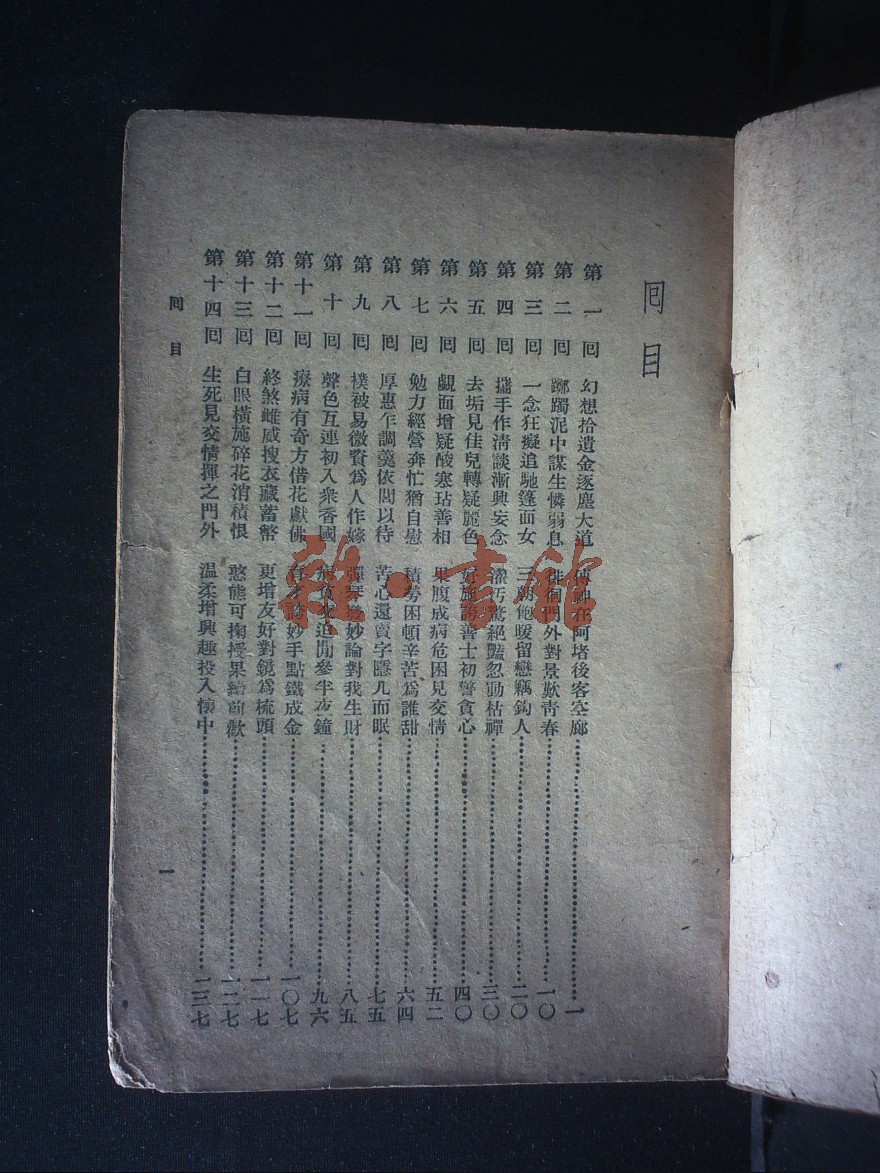 回目
第一回 幻想拾遺金逐塵大道 神在阿堵後客空廊 一
第二回 躑躅泥中謀生憐弱息 徘徊門外對景歎青春 一〇
第三回 一念狂癡追馳篷面女 三朝飽暖留戀竊鈎人 二〇
第四回 攜手作清談漸興妄念 濯汚驚絕豔忽動枯禪 三〇
第五回 去垢見佳兒轉疑麗色 好施誇善士初警貪心 四〇
第六回 覷面增疑酸寒玷善相 果腹成病危困見交情 五二
第七回 勉力經營奔忙猶自慰 積勞困頓辛苦爲誰甜 六四
第八回 厚惠乍調羹依閭以待 苦心還賣字隱几而眠 七五
第九回 襆被易微貲爲人作嫁 彈琴發妙論對我生財 八五
第十回 聲色互連初入衆香國 閒參半夜鐘 九六
第十一回 療病有奇方借花獻佛 妙手點鐵成金 一〇七
第十二回 終煞雌威搜衣藏蓄幣 更增友好對鏡爲梳頭 一一七
第十三回 白眼橫施碎花消積恨 憨態可掬授果續前歡 一二七
第十四回 生死見交情揮之門外 温柔增興趣投入懷中 一三七
回目
一
雜·書館